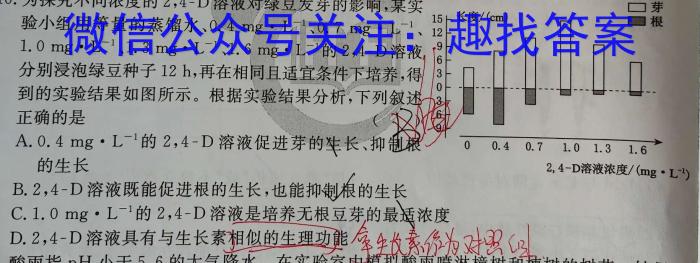 为探究不同浓度的2,4-D溶液对绿豆发芽的影响,某实
验小组用等量的蒸馏水、0.4 mg·L⁻¹、0.7 mg·L⁻¹、
微信公众号关注:趣找答案
1.0 mg 1.3 mg 6 mg 2,4-D溶液
分别浸泡绿豆种子12 h,再在相同且适宜条件下培养,得
到的实验结果如图所示。根据实验结果分析,下列叙述
正确的是
A.0.4 mg·L⁻¹的2,4-D溶液促进芽的生长、抑制根
的生长
B.2,4-D溶液既能促进根的生长,也能抑制根的生长
C.1.0 mg·L⁻¹的2,4-D溶液是培养无根豆芽的最适浓度
D.2,4-D溶液具有与生长素相似的生理功能
长度/cm
芽
根
15
12
9
6
3
0
3
6
0 0.4 0.7 1.0 1.3 1.6
2,4-D溶液浓度/(mg·L
酸雨指pH小于5.6的大气降水